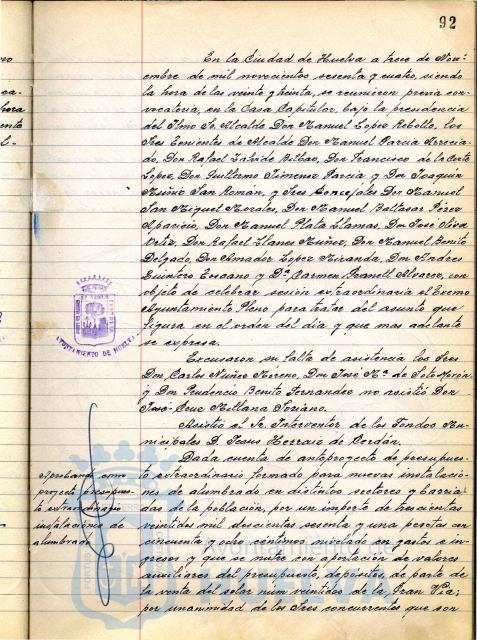 92
En la Ciudad de Huelva a trece de Novi-
embre de mil novecientos sesenta y cuatro, siendo
la hora de las veinte y treinta, se reunieron previa con-
vocatoria, en la Casa Capitular, bajo la presidencia
del Ilmo Sr. Alcalde Don Manuel Lopez Rebollo, los
Sres Tenientes de Alcalde Don Manuel Garcia
Don Rafael Bilbao, Don Francisco de la Corte
Lopez, Don Guillermo Jimenez Garcia y Don Joaquin
San Román, y Sres Concejales Don Manuel
San Miguel Morales, Don Manuel Baltasar Pérez
Aparicio, Don Manuel Plata Llamas, Don José Oliva
Ortiz, Don Rafael Llanes Muñoz, Don Manuel Benito
Delgado, Don Amador Lopez Miranda, Don Andres
Quintero Escano y Dª Carmen Alvarez, con
objeto de celebrar sesión extraordinaria el Excmo
Ayuntamiento Pleno para tratar del asunto que
figura en el orden del dia y que mas adelante
se expresa.
Excusaron su falta de asistencia los Sres
Don Carlos Nuñez Moreno, Don José Mª de Soto
y Don Prudencio Benito Fernandez no asistió Don
José-Cruz Orellana Soriano.
Asistió el Sr Interventor de los Fondos Mu-
nicipales D. Jesus Herraiz de
Dada cuenta de anteproyecto de presupues-
to extraordinario formado para nuevas instalacio-
nes de alumbrado en distintos sectores y barria-
das de la población, por un importe de trescientas
veintidos mil doscientas sesenta y una pesetas con
cincuenta y ocho centimos nivelado en gastos e in-
gresos y que se nutre con aportación de valores
auxiliares del presupuesto, depósitos, de parte de
la venta del solar num veintidos de la Gran Via;
por unanimidad de los Sres concurrentes que son
Aprobando ante-
proyecto presupues-
to extraordinario
instalaciones de
alumbrado
AYUNTAMIENTO DE HUELVA
Ayuntamiento de
HUELVA